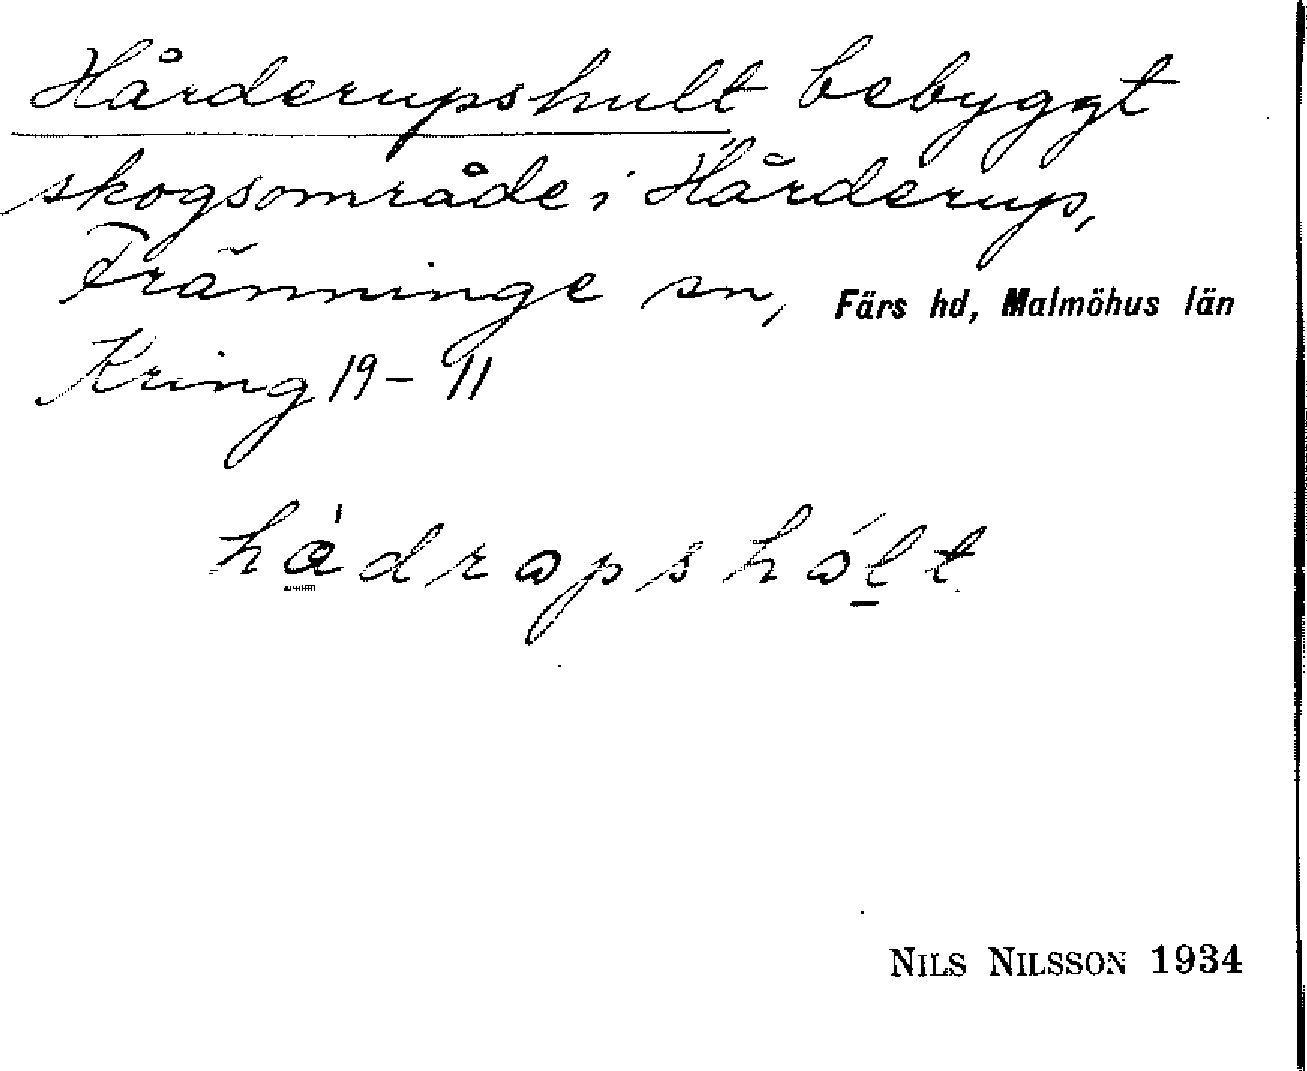 Hårderupshult bebyggt
skogsområde i Hårderup,
Tränninge sn, Färs hd, Malmöhus län
Kring 19–11
hàdrapshólt
NILS NILSSON 1934